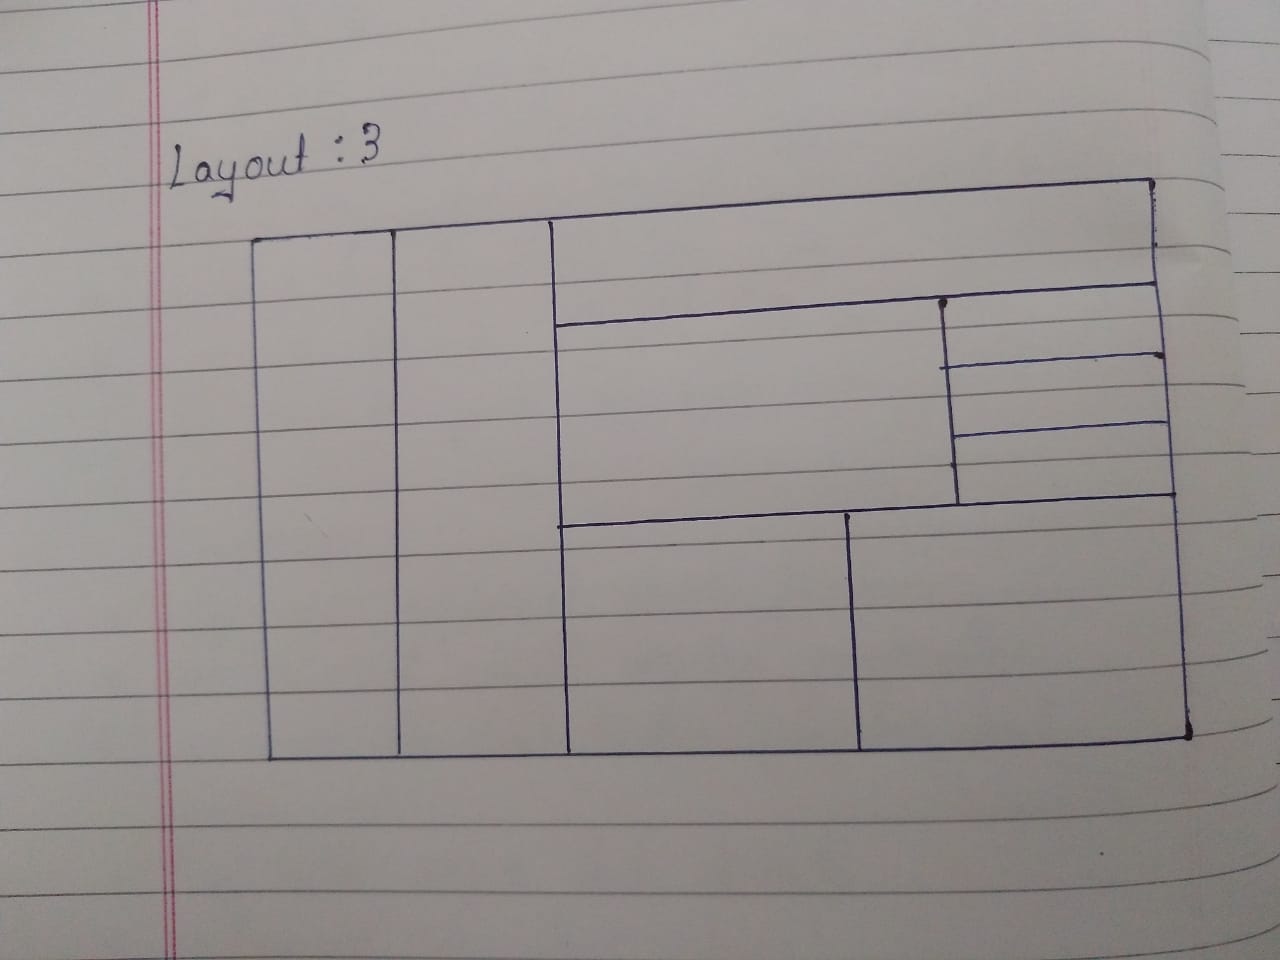 Layout : 3